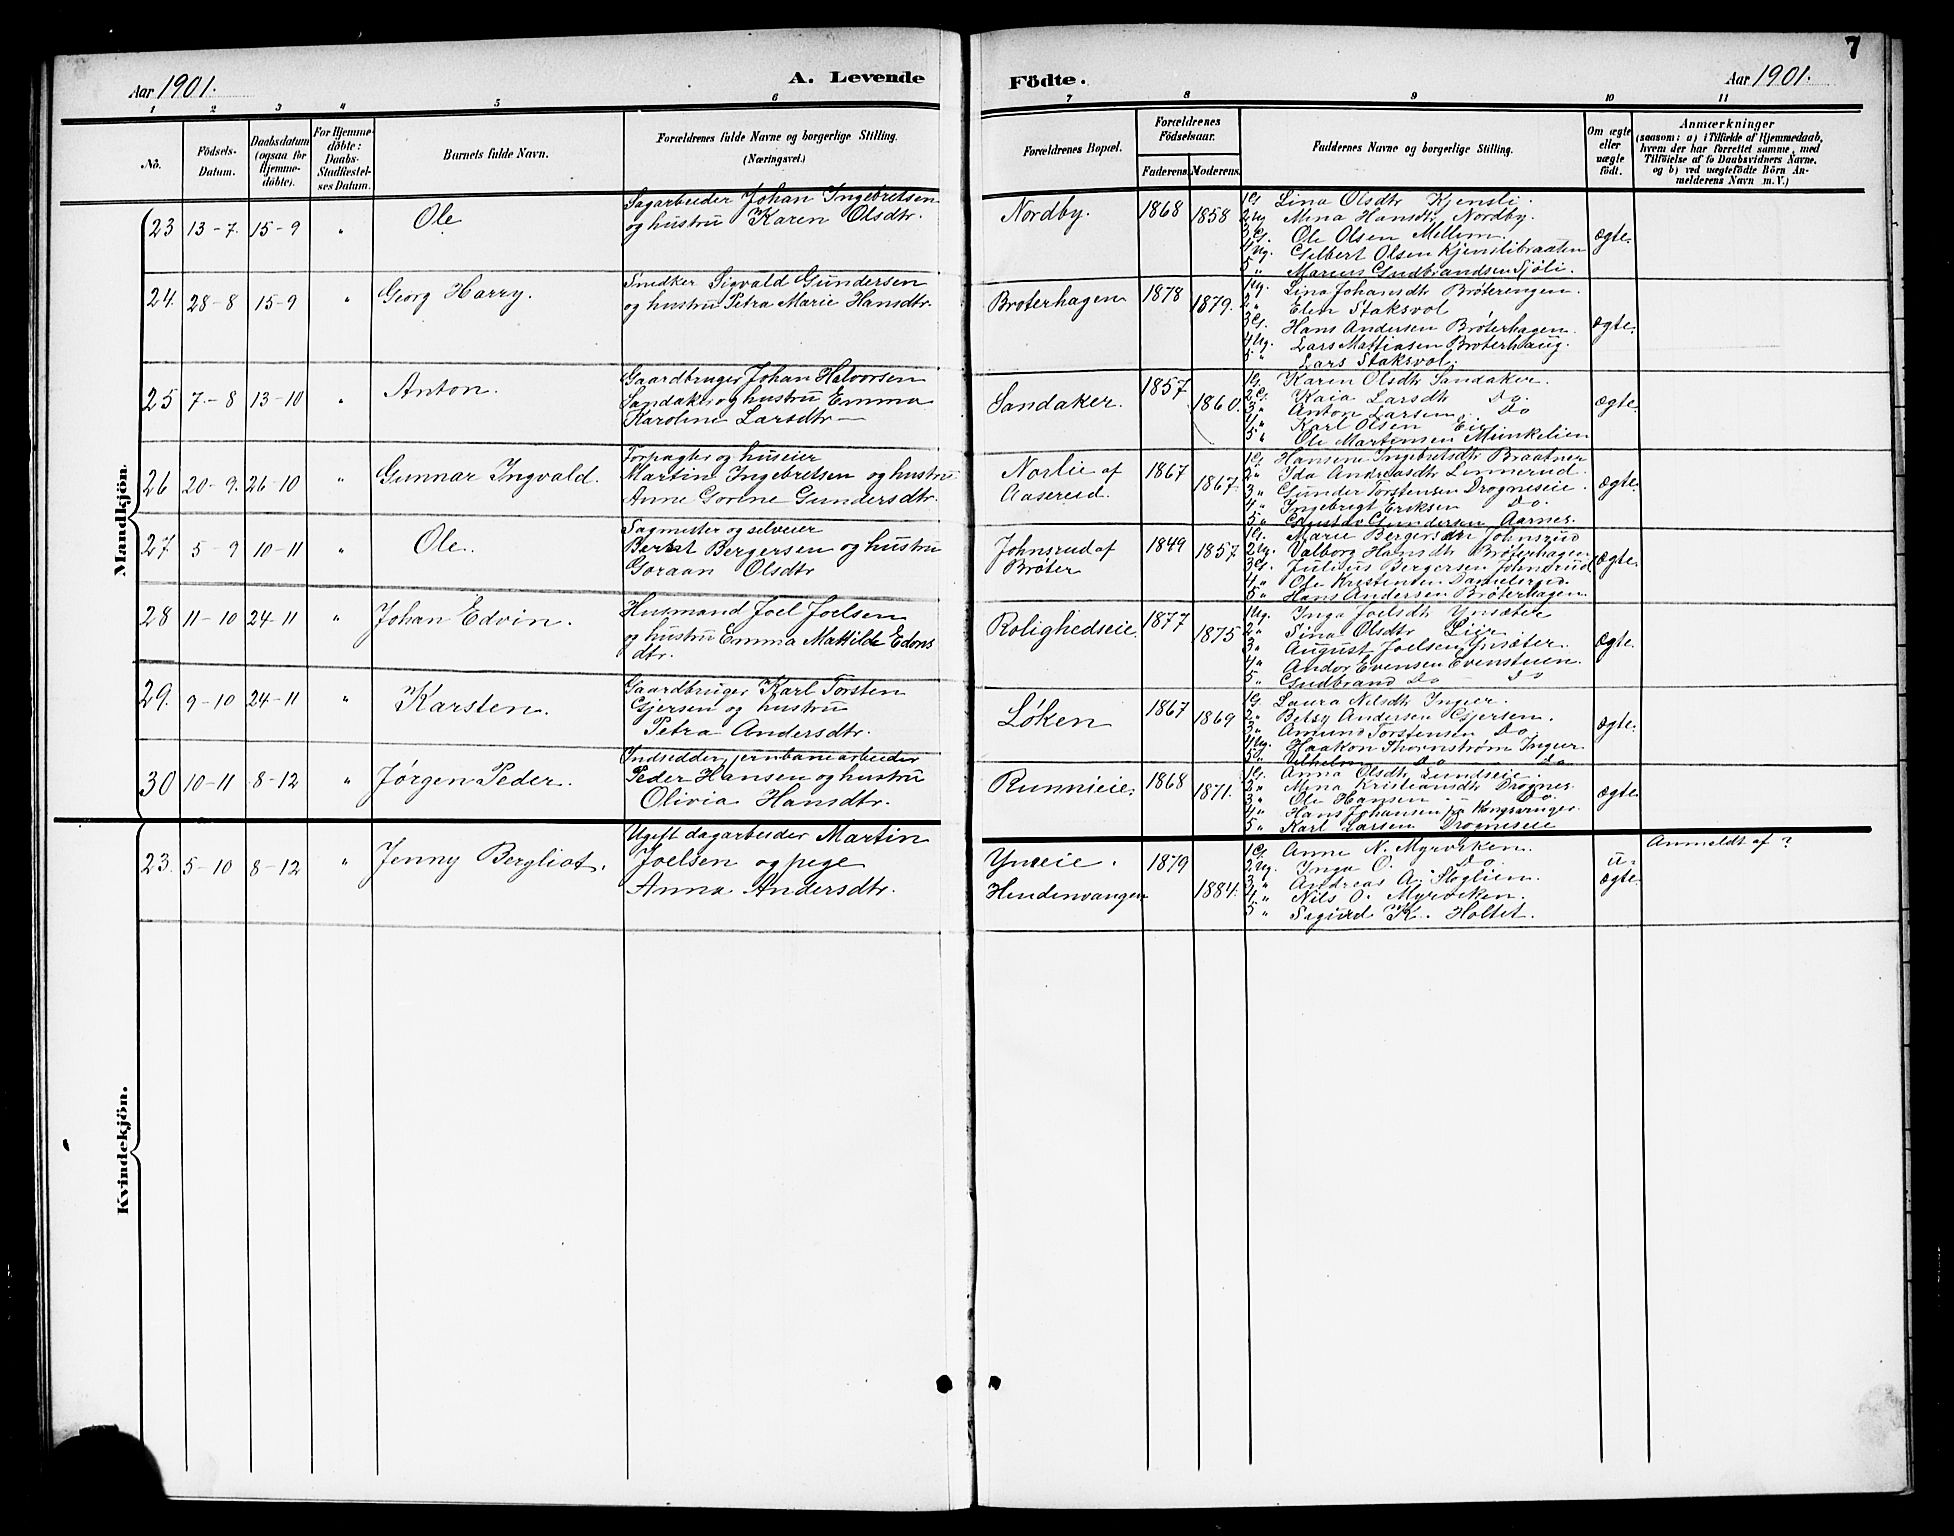 7
Aar 1901.
A. Levende
Födte.
Aar 1901.
1 2 3 4 5 6 7 8 9 10 11
No.
Födsels-
Datum.
Daabsdatum
(ogsaa for
Hjemme-
döbte).
For Hjemme-
döbte:
Daabs-
Stadfæstel-
ses Datum.
Barnets fulde Navn.
Forældrenes fulde Navne og borgerlige Stilling.
(Næringsvei.)
Forældrenes Bopæl.
Forældrenes
Födselsaar.
Faderens.
Moderens.
Faddernes Navne og borgerlige Stilling.
Om ægte
eller
uægte
födt.
Anmærkninger
(saasom: a) i Tilfælde af Hjemmedaab,
hvem der har forrettet samme, med
Tilföielse af to Daabsvidners Navne.
og b) ved uægtefödte Börn An-
melderens Navn m. V.)
Mandkjön.
23 13-7. 15-9 " Ole
Sagarbeider Johan Ingebretsen
og hustru Karen Olsdtr.
Nordby. 1868 1858
1 G. Lina Olsdtr Kjensli.
2 Ug. Mina Hansdtr Nordby.
3 G. Ole Olsen Mellem.
4 Ug. Gilbert Olsen Kjenslibraaten
5 " Marius Gudbrandsen Sjöli.
ægte.
24. 28-8 15-9 " Georg Harry.
Snedker Sigvald Gundersen
og hustru Petra Marie Hansdtr.
Broterhagen 1878 1879.
1 Ug. Lina Johansdtr Bröterengen.
2 " Elen Staksvol
3 G. Hans Andersen Bröterhagen.
4 Ug. Lars Mattiasen Broterhaug.
5 " Lars Staksvol.
ægte.
25 7-8 13-10 " Anton.
Gaardbruger Johan Halvorsen
Sandaker og hustru Emma
Karoline Larsdtr
Sandaker. 1857 1860.
1 G. Karen Olsdtr Sandaker.
2 G. Kaia Larsdtr Do.
3 " Anton Larsen Do
4 " Karl Olsen Eie
5 " Ole Martensen Munkelien
ægte
26 20-9. 26-10 " Gunnar Ingvald.
Forpagter og huseier
Martin Ingebretsen og hustru
Anne Gorine Gundersdtr.
Norlie af
Aaserud. 1867 1867.
1 G. Hansine Ingebretsdtr Braatner
2 " Ida Andreasdtr Linnerud.
3 " Gunder Torstensen Drogneseie.
4 " Ingebrigt Eriksen Do.
5 " Gustav Gundersen Aarnes.
ægte.
27. 5-9 10-11 " Ole.
Sagmester og selveier
Bernt Bergersen og hustru
Goraan Olsdtr
Johnsrud af
Bröter 1849 1857
1 G. Marie Bergersdtr Johnsrud
2 Ug. Valborg Hansdtr Bröterhagen
3 G. Julius Bergersen Johnsrud
4 " Ole Kristensen Danielsrud.
5 " Hans Andersen Bröterhagen.
ægte.
28 11-10 24-11 " Johan Edvin.
Husmand Joel Joelsen
og hustru Emma Mathilde Edons
dtr.
Rolighedseie. 1877 1875
1 Ug. Inga Joelsdtr Ynsæter
2 " Sina Olsdtr Lier
3 " August Joelsen Ynsæter.
4 " Andor Evensen Evensteien.
5 " Gudbrand Do Do
ægte.
29. 9-10 24-11 " Karsten.
Gaardbruger Karl Torsten
Gjersen og hustru
Petra Andersdtr.
Løken 1867 1869
1 G. Laura Nilsdtr Ingier.
2 " Betsy Andersen Gjersen.
3 " Amund Torstensen Do
4 Ug. Haakon Thornstrøm Ingier
5 " Vilhelm Do Do
ægte.
30 10-11 8-12 " Jørgen Peder.
Indsidder, jernbanearbeider
Peder Hansen og hustru
Olivia Hansdtr.
Runnieie. 1868 1871.
1 G. Anna Olsdtr Lundseie.
2 " Mina Kristiansdtr Drognes.
3 " Ole Hansen Do
4 " Hans Johansen fra Kongsvinger.
5 " Karl Larsen Drogneseie
ægte.
Kvindekjön.
23. 5-10 8-12 " Jenny Bergliot.
Ugift dagarbeider Martin
Joelsen og pige
Anna Andersdtr.
Ynseie.
Hendenvangen 1879 1884.
1 G. Anne N. Myrviken.
2 Ug. Inga O. Do.
3 " Andreas A. Skoglien.
4 " Nils O. Myrviken.
5 " Sigurd K. Holtet.
u-
ægte.
Anmeldt af ?